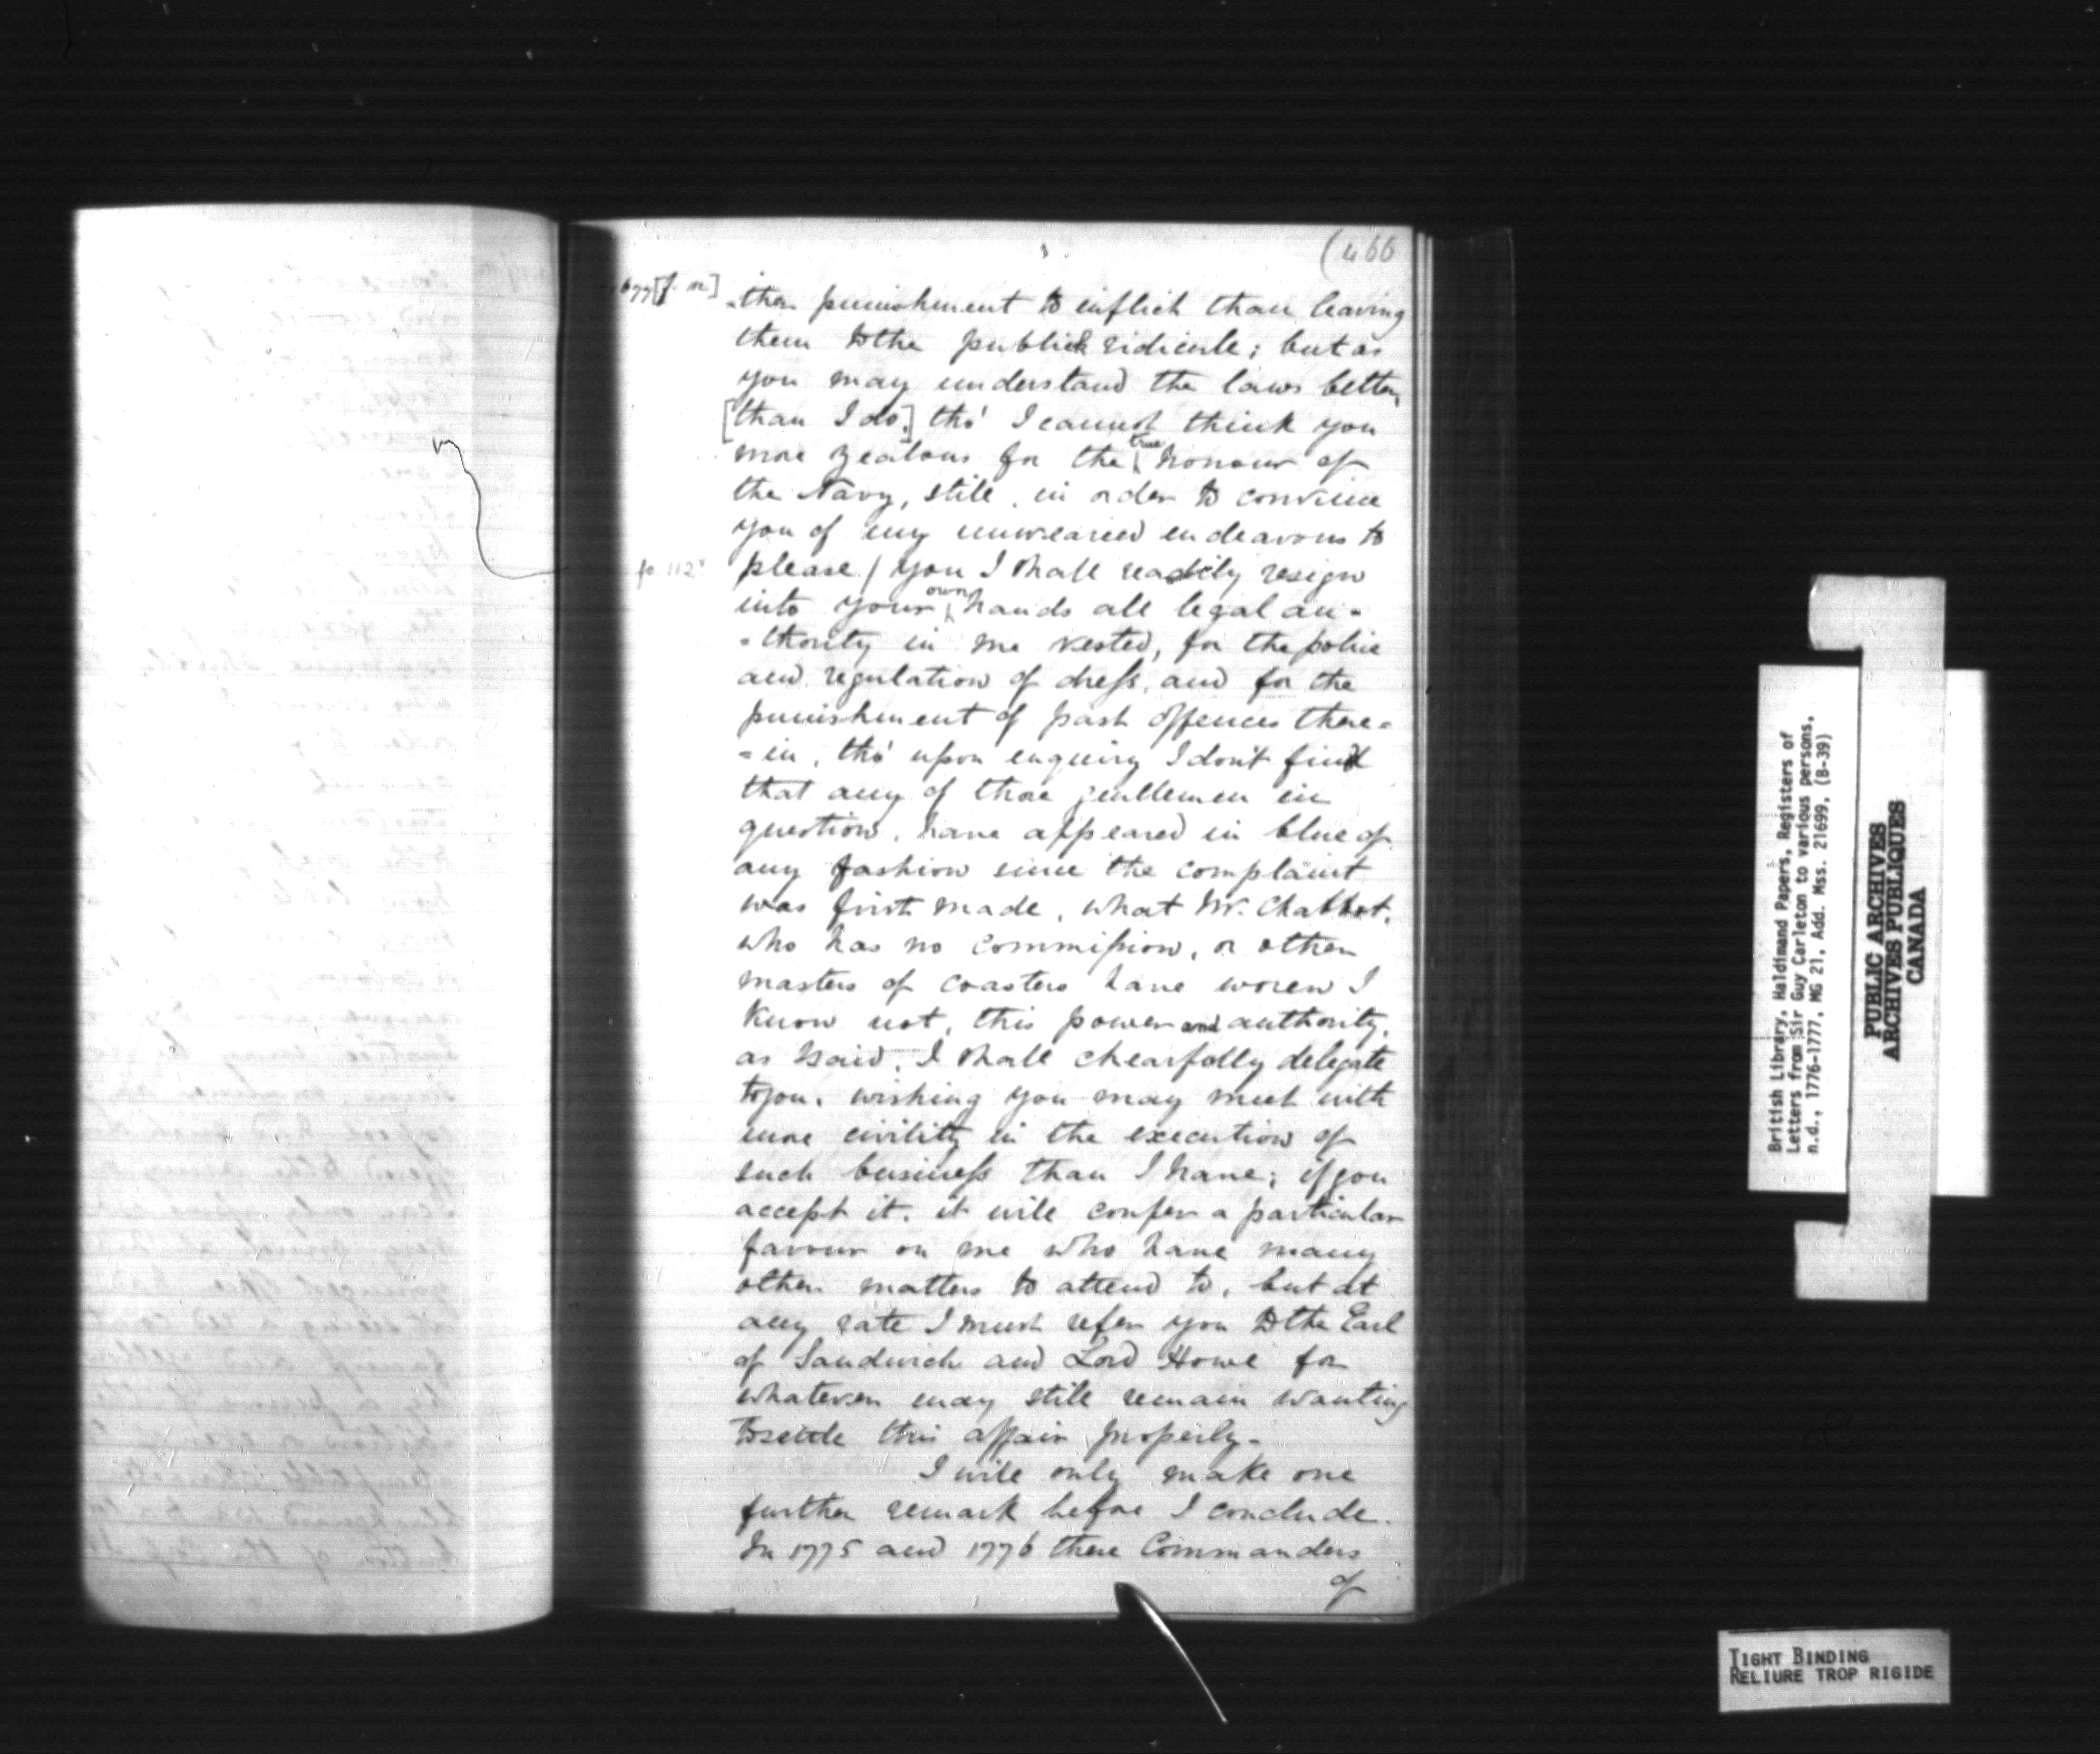 (466
-ther punishment to inflict than leaving
them to the publick ridicule; but as
you may understand the laws better
[than I do,] tho' I cannot think you
more zealous for the true honour of
the Navy, still, in order to convince
you of my unwearied endeavours to
fo. 112v
please / you I shall readily resign
into your own hands all legal au-
-thority in me vested, for the police
and regulation of dress, and for the
punishment of past offences there=
=in, tho' upon enquiry I don't find
that any of those gentlemen in
question, have appeared in blue of
any fashion since the complaint
was first made, what Mr. Chabbot,
who has no commission, or other
masters of coasters have woren I
know not, this power and authority,
as I said, I shall chearfully delegate
to you, wishing you may meet with
more civility in the execution of
such business than I have; if you
accept it, it will confer a particular
favour on me who have many
other matters to attend to, but at
any rate I must refer you to the Earl
of Sandwich and Lord Howe for
whatever may still remain wanting
to settle this affair properly-
I will only make one
further remark before I conclude.
In 1775 and 1776 there Commanders
of
British Library, Haldimand Papers, Registers of
Letters from Sir Guy Carleton to various persons,
n.d., 1776-1777, MG 21, Add. Mss. 21699, (B-39)
PUBLIC ARCHIVES
ARCHIVES PUBLIQUES
CANADA
TIGHT BINDING
RELIURE TROP RIGIDE